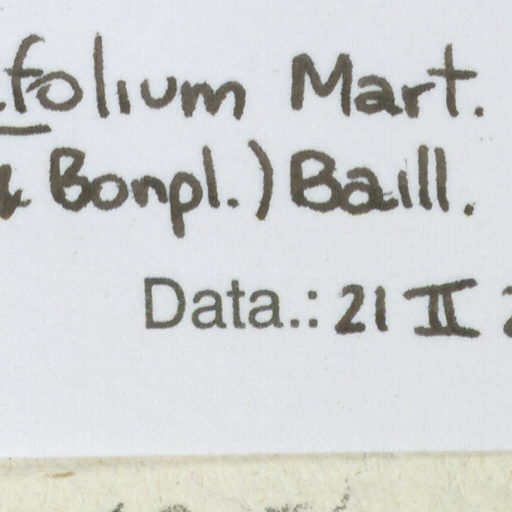 folium Mart.
& Bonpl.) Baill.
Data.: 21 II 2